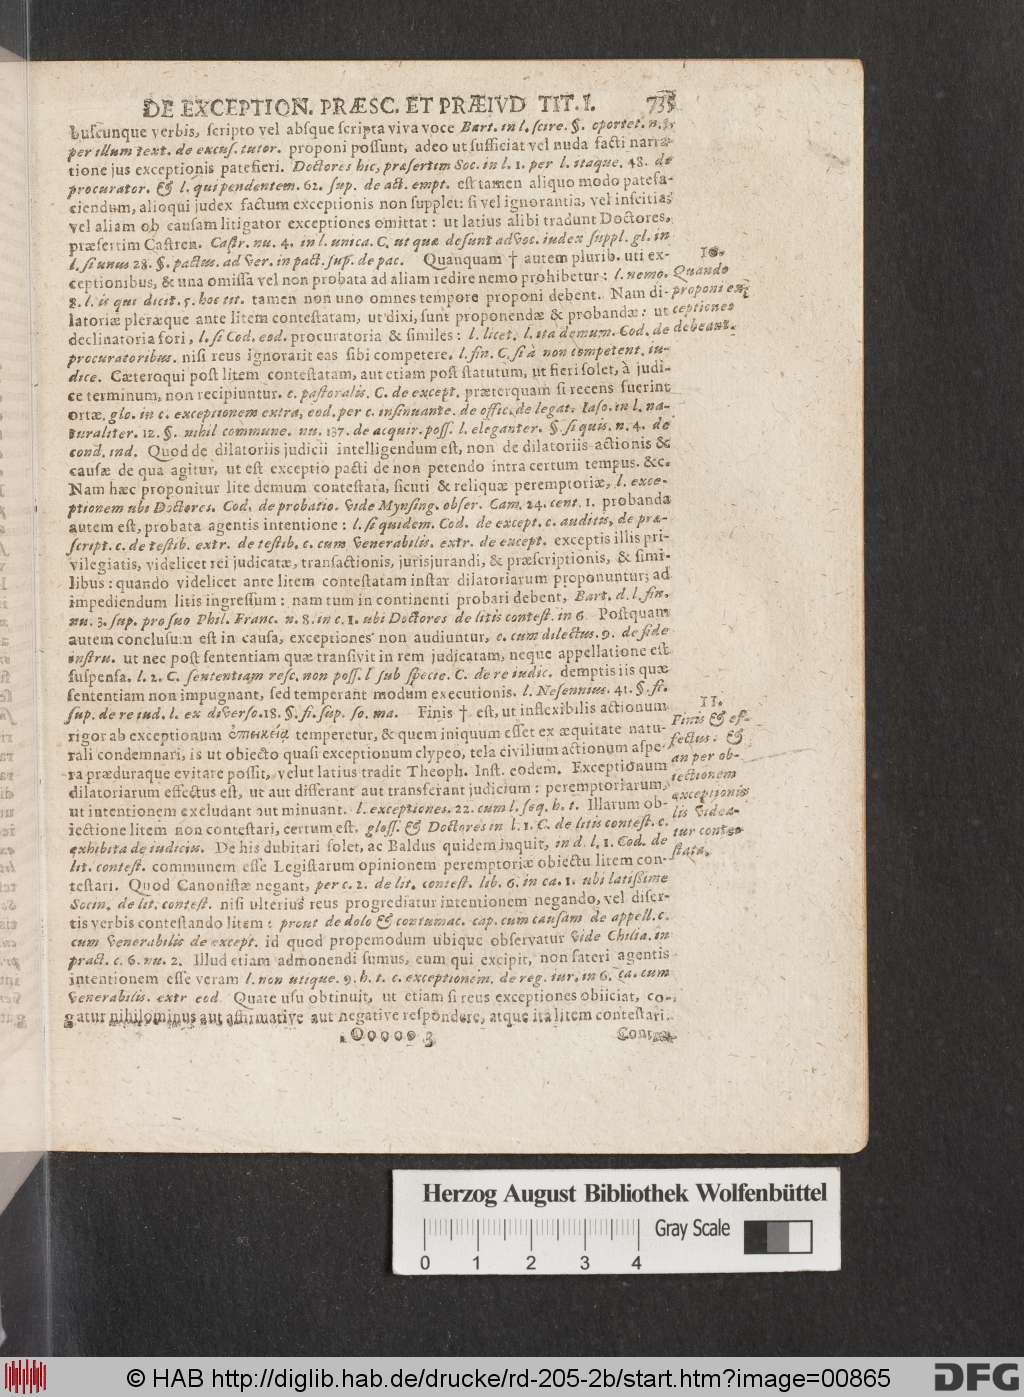 DE EXCEPTION. PRÆSC. ET PRÆIVD TIT. I. 735
buscunque verbis, scripto vel absque scripta viva voce Bart. in l. scire. §. oportet. n. 3.
per illum text. de excus. tutor. proponi possunt, adeo ut sufficiat vel nuda facti narra-
tione jus exceptionis patefieri. Doctores hic, præsertim Soc. in l. 1. per l. itaque. 48. de
procurator. & l. qui pendentem. 62. sup. de act. empt. est tamen aliquo modo patefa-
ciendum, alioqui judex factum exceptionis non supplet: si vel ignorantia, vel inscitia,
vel aliam ob causam litigator exceptiones omittat: ut latius alibi tradunt Doctores,
præsertim Castren. Castr. nu. 4. in l. unica. C. ut quæ desunt advoc. iudex suppl. gl. in
l. si unus 28. §. pactus. ad ver. in pact. sup. de pac. Quanquam † autem plurib. uti ex-
ceptionibus, & una omissa vel non probata ad aliam redire nemo prohibetur: l. nemo.
8. l. is qui dicit. 5. hoc tit. tamen non uno omnes tempore proponi debent. Nam di-
latoriæ pleræque ante litem contestatam, ut dixi, sunt proponendæ & probandæ: ut
declinatoria fori, l. si Cod. eod. procuratoria & similes: l. licet. l. ita demum. Cod. de
procuratoribus. nisi reus ignorarit eas sibi competere. l. fin. C. si à non competent. iu-
dice. Cæteroqui post litem contestatam, aut etiam post statutum, ut fieri solet, à judi-
ce terminum, non recipiuntur. c. pastoralis. C. de except. præterquam si recens fuerint
ortæ. glo. in c. exceptionem extra, eod. per c. insinuante. de offic. de legat. Iaso. in l. na-
turaliter. 12. §. nihil commune. nu. 137. de acquir. poss. l. eleganter. §. si quis. n. 4. de
cond. ind. Quod de dilatoriis judicii intelligendum est, non de dilatoriis actionis &
causæ de qua agitur, ut est exceptio pacti de non petendo intra certum tempus. &c.
Nam hæc proponitur lite demum contestata, sicuti & reliquæ peremptoriæ, l. exce-
ptionem ubi Doctores. Cod. de probatio. vide Mynsing. obser. Cam. 24. cent. 1. probanda
autem est, probata agentis intentione: l. si quidem. Cod. de except. c. auditis, de præ-
script. c. de testib. extr. de testib. c. cum venerabilis. extr. de except. exceptis illis pri-
vilegiatis, videlicet rei judicatæ, transactionis, jurisjurandi, & præscriptionis, & simi-
libus: quando videlicet ante litem contestatam instar dilatoriarum proponuntur; ad
impediendum litis ingressum: nam tum in continenti probari debent, Bart. d. l. fin.
nu. 3. sup. pro suo Phil. Franc. n. 8. in c. 1. ubi Doctores de litis contest. in 6 Postquam
autem conclusum est in causa, exceptiones non audiuntur, c. cum dilectus. 9. de fide
instru. ut nec post sententiam quæ transivit in rem judicatam, neque appellatione est
suspensa. l. 2. C. sententiam resc. non poss. l sub specie. C. de re iudic. demptis iis quæ
sententiam non impugnant, sed temperant modum executionis. l. Nesennius. 41. §. fi.
sup. de re iud. l. ex diverso. 18. §. fi. sup. so. ma. Finis † est, ut inflexibilis actionum
rigor ab exceptionum ἐπιεικείᾳ temperetur, & quem iniquum esset ex æquitate natu-
rali condemnari, is ut obiecto quasi exceptionum clypeo, tela civilium actionum aspe-
ra præduraque evitare possit, velut latius tradit Theoph. Inst. eodem. Exceptionum
dilatoriarum effectus est, ut aut differant aut transferant judicium: peremptoriarum,
ut intentionem excludant aut minuant. l. exceptiones. 22. cum l. seq. h. t. Illarum ob-
iectione litem non contestari, certum est. gloss. & Doctores in l. 1. C. de litis contest. c.
exhibita de iudiciis. De his dubitari solet, ac Baldus quidem inquit, in d. l. 1. Cod. de
lit. contest. communem esse Legistarum opinionem peremptoriæ obiectu litem con-
testari. Quod Canonistæ negant, per c. 2. de lit. contest. lib. 6. in ca. 1. ubi latissime
Socin. de lit. contest. nisi ulterius reus progrediatur intentionem negando, vel diser-
tis verbis contestando litem: prout de dolo & contumac. cap. cum causam de appell. c.
cum venerabilis de except. id quod propemodum ubique observatur vide Chilia. in
pract. c. 6. nu. 2. Illud etiam admonendi sumus, eum qui excipit, non fateri agentis
intentionem esse veram l. non utique. 9. h. t. c. exceptionem. de reg. iur. in 6. ca. cum
venerabilis. extr eod. Quare usu obtinuit, ut etiam si reus exceptiones obiiciat, co-
gatur nihilominus aut affirmative aut negative respondere, atque ita litem contestari.
Ooooo 3
10.
Quando
proponi ex-
ceptiones
debeant.
11.
Finis & ef-
fectus: &
an per ob-
iectionem
exceptionis
lis videa-
tur conte-
stata.
Herzog August Bibliothek Wolfenbüttel
Gray Scale
0 1 2 3 4
© HAB http://diglib.hab.de/drucke/rd-205-2b/start.htm?image=00865
DFG